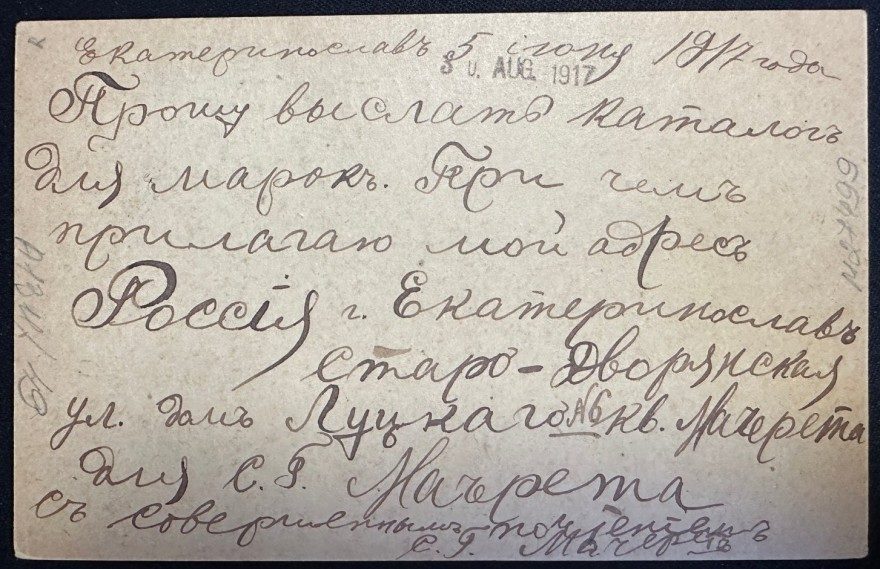 Екатеринославъ 5 іюня 1917 года
30. AUG. 1917
Прошу выслать каталогъ
для марокъ. При чемъ
прилагаю мой адресъ
Россія г. Екатеринославъ
Старо-Дворянская
ул. домъ Луцкаго №6 кв. Мачерета
для С. Г. Мачерета
съ совершеннымъ почтеніемъ
С. Г. Мачеретъ